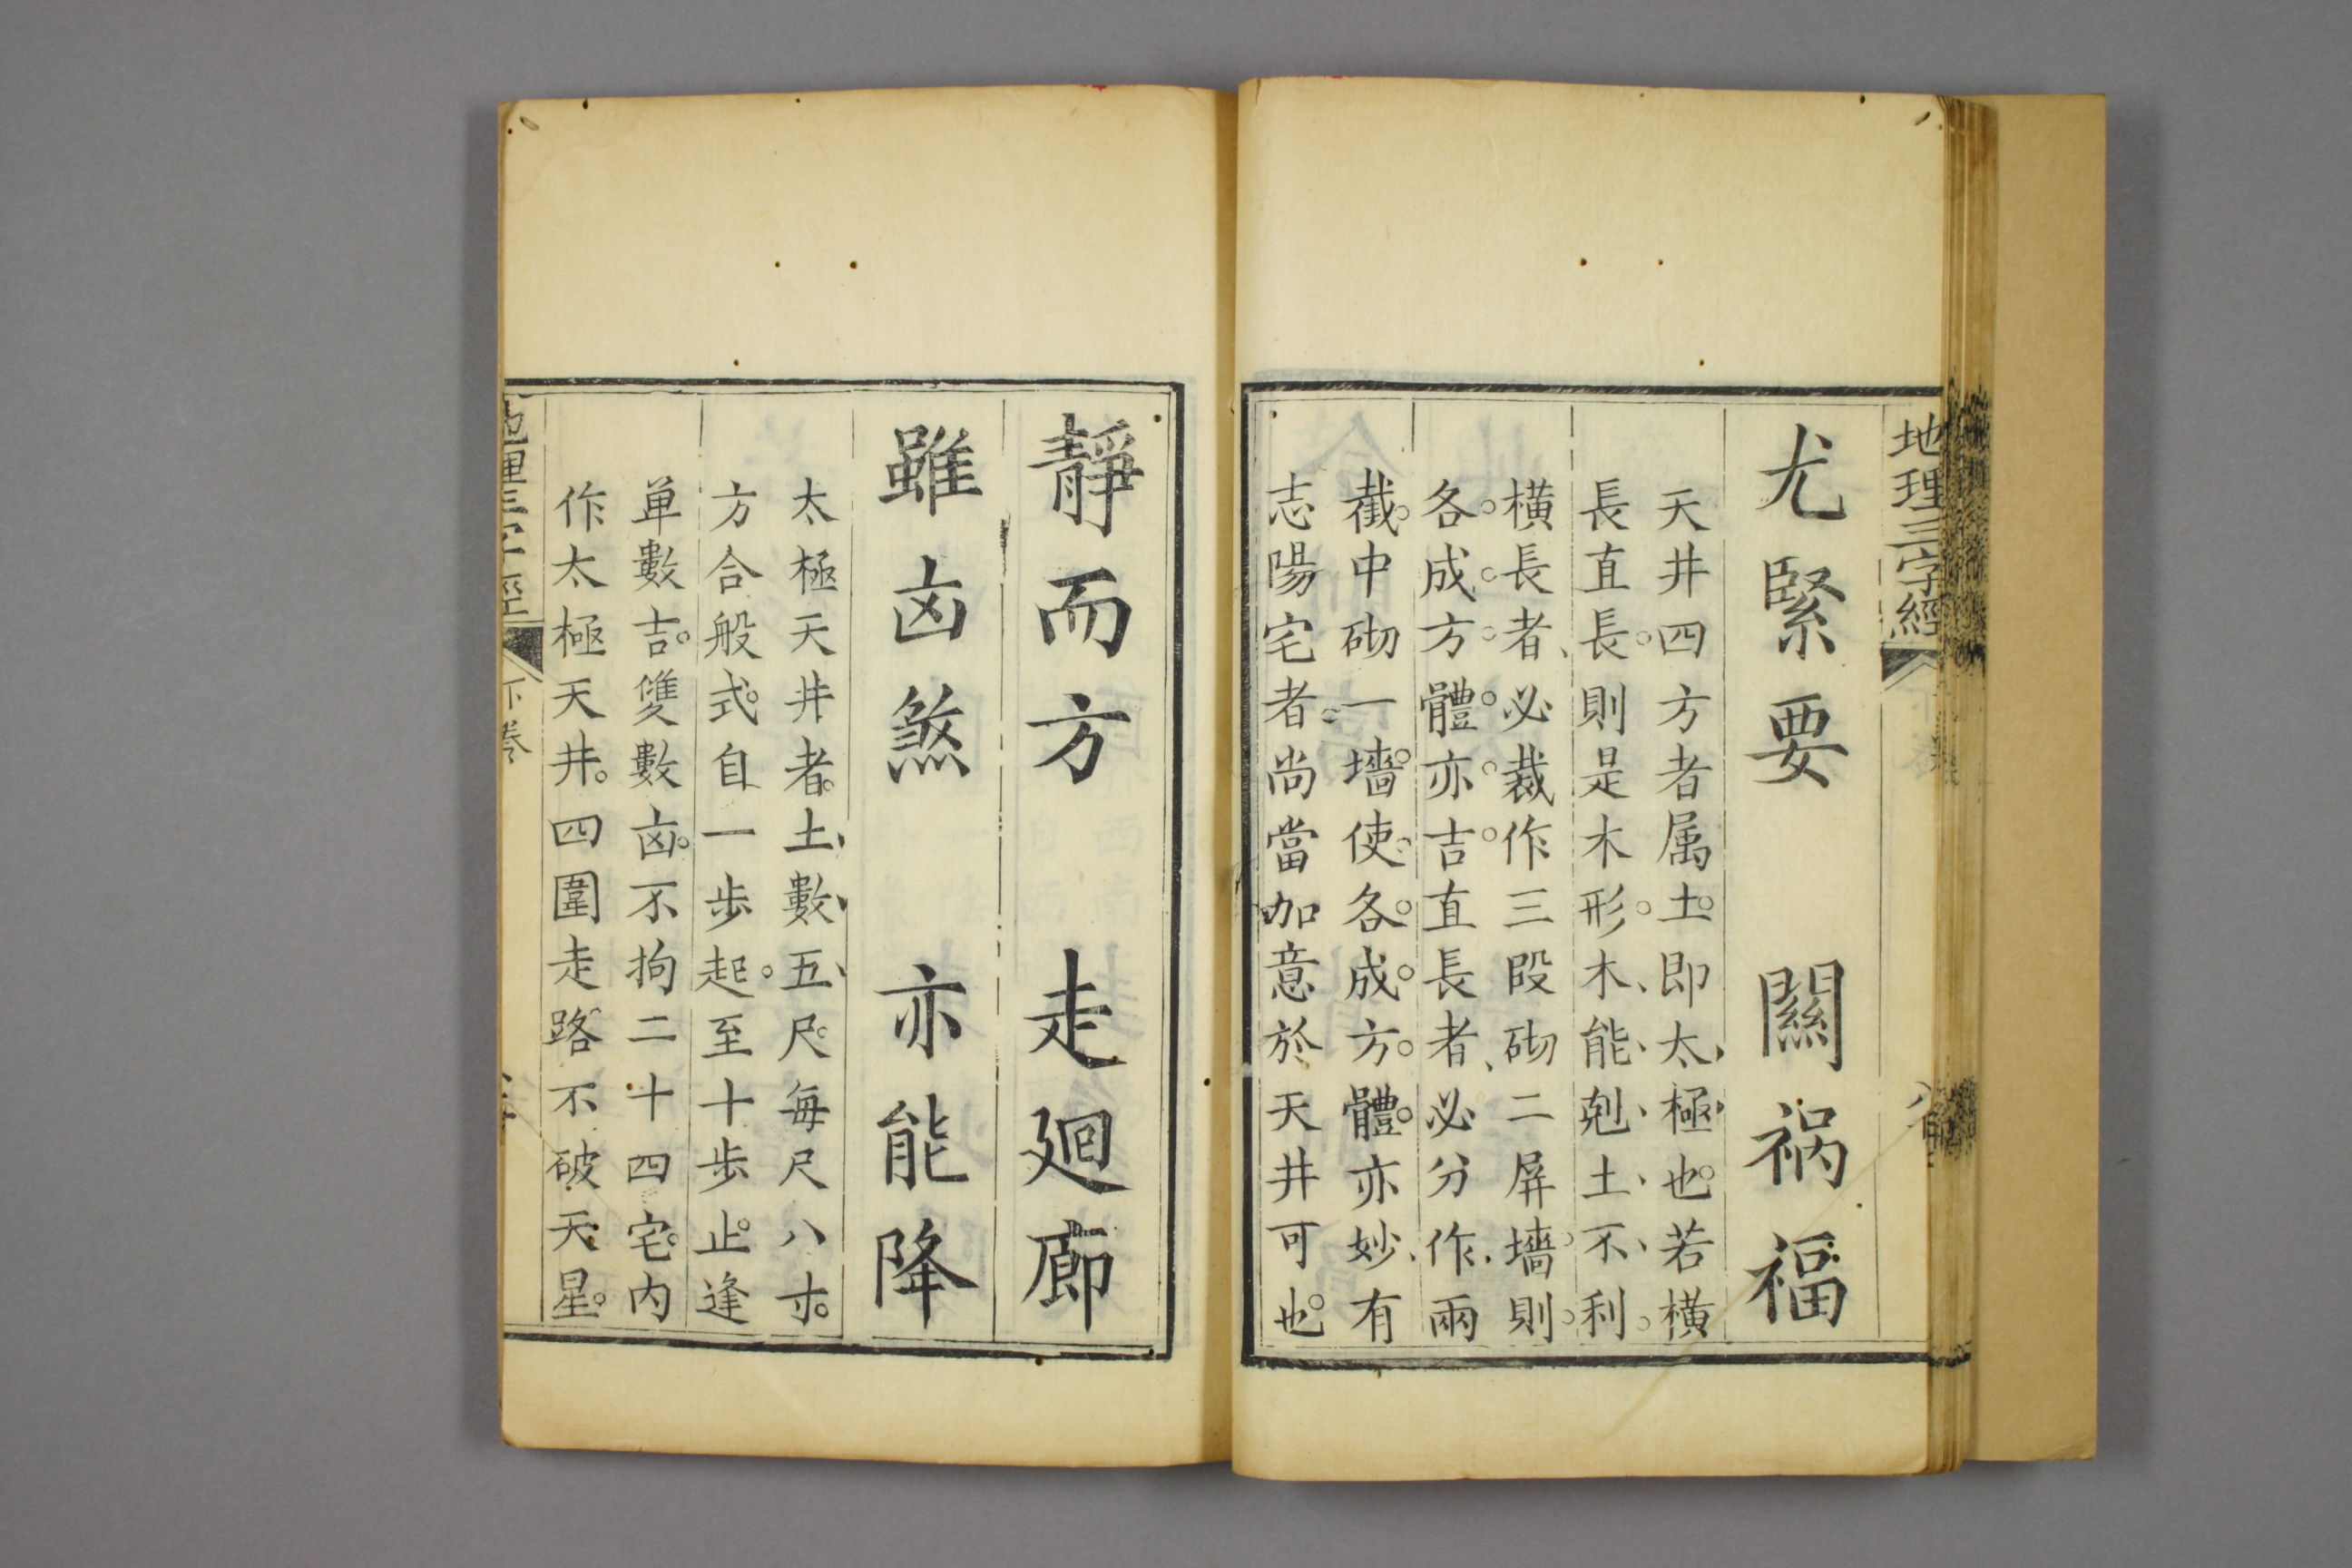 地理三字經
尤緊要　關祸福
天井四方者属土。即太極也。若橫
長直長。則是木形。木、能、剋、土、不、利。
橫長者、必裁作三段砌二屏墻則。
各。成。方。體。亦。吉。直長者、必分作、兩
截。中砌一墻。使。各。成。方。體。亦妙、有
志陽宅者。尚當加意於天井可也。
靜而方　走廻廊
雖凶煞　亦能降
太極天井者。土、數、五、尺。每尺八寸。
方合般式。自一步起。至十步止。逢
单數吉。雙數凶。不拘二十四宅。内
作太極天井。四圍走路不破天星。
地理三字經
下卷